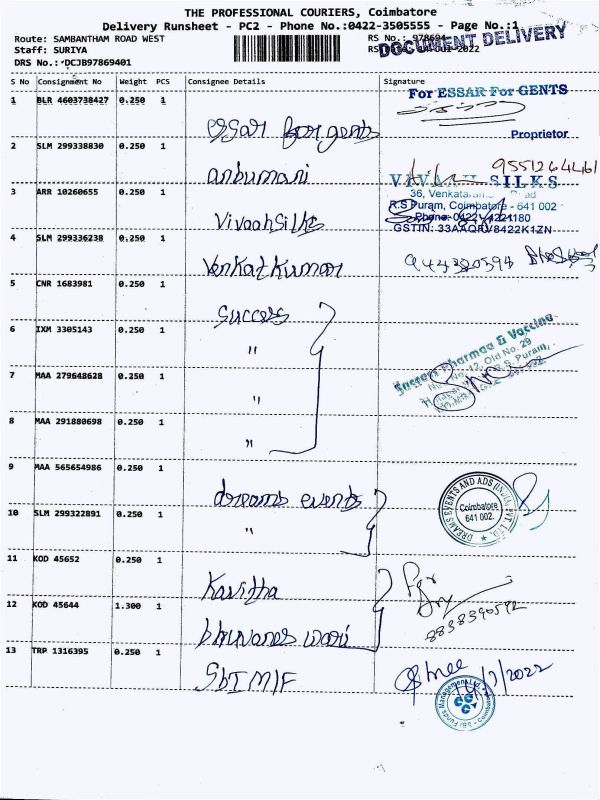 THE PROFESSIONAL COURIERS, Coimbatore
Delivery Runsheet - PC2 - Phone No.:0422-3505555 - Page No.:1
Route: SAMBANTHAM ROAD WEST
RS No.: 978694
Staff: SURIYA
DOCUMENT DELIVERY
DRS No.: DCJB97869401
S No Consignment No Weight PCS Consignee Details Signature
1 BLR 4603738427 0.250 1
For ESSAR For GENTS
essar for gents
Proprietor
2 SLM 299338830 0.250 1
anbumani
9551264461
VIVAAH SILKS
3 ARR 10260655 0.250 1
36, Venkatarathinam Road
R.S Puram, Coimbatore - 641 002
Vivaah silks
Phone: 0422-4221180
GSTIN: 33AAQFV8422K1ZN
4 SLM 299336238 0.250 1
Venkat kumar
5 CNR 1683981 0.250 1
Success
6 IXM 3305143 0.250 1
"
Success Pharmaa & Vaccine
Old No. 29
R.S. Puram,
7 MAA 279648628 0.250 1
"
8 MAA 291880698 0.250 1
"
9 MAA 565654986 0.250 1
dreams events
DREAMS EVENTS AND ADS INDIA PVT. LTD.
Coimbatore
641 002.
10 SLM 299322891 0.250 1
"
11 KOD 45652 0.250 1
Kavitha
12 KOD 45644 1.300 1
8838390592
bhuvaneswari
13 TRP 1316395 0.250 1
SbI M/F
14/7/2022
SBI Funds Management Ltd. Coimbatore